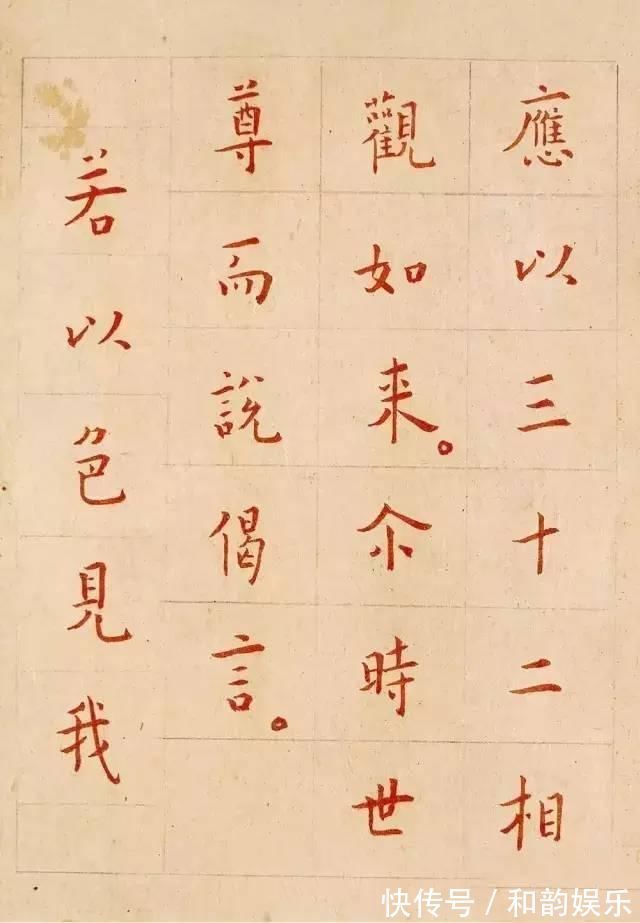 應以三十二相
觀如来。尒時世
尊而說偈言。
若以色見我
快传号/和韵娱乐